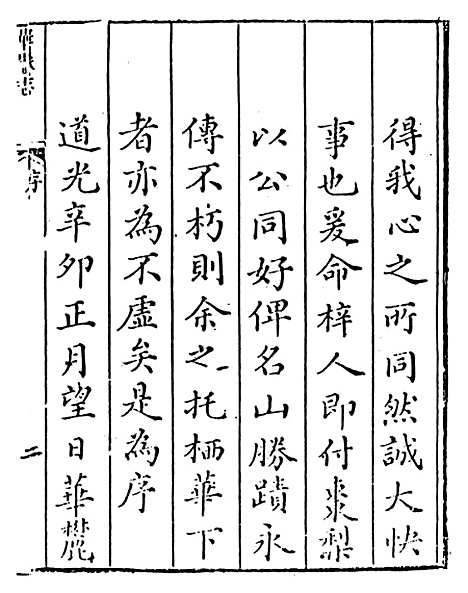 得我心之所同然誠大快
事也爰命梓人即付棗梨
以公同好俾名山勝蹟永
傳不朽則余之托栖華下
者亦為不虛矣是為序
道光辛卯正月望日華麓
華嶽志
序
二